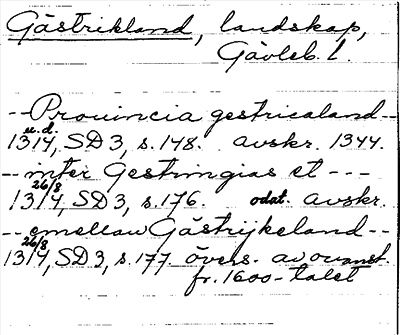 Gästrikland, landskap,
Gävleb. l.
-- Provincia gestricaland --
u.d.
1314, SD 3, s. 148. avskr. 1344.
-- inter Gestringias et ---
26/8
1317, SD 3, s. 176. odat. avskr.
-- emellan Gästrijkeland --
26/8
1317, SD 3, s. 177 övers. av ovanst.
fr. 1600-talet